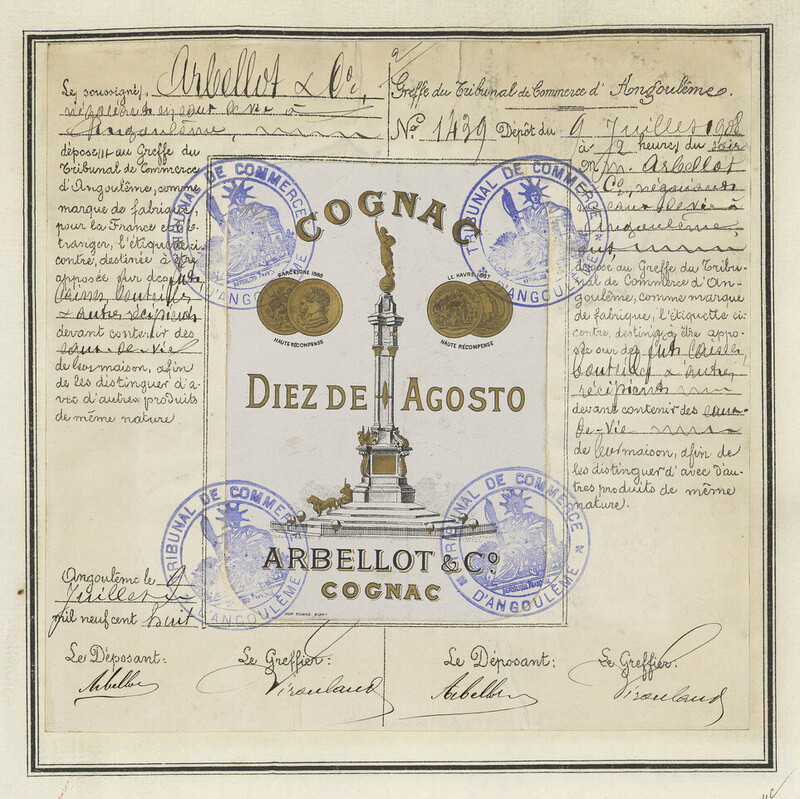 Les soussignés, Arbellot & Co.,
négociants en eaux de vie à
Angoulême,
déposent au Greffe du
Tribunal de Commerce
d'Angoulême, comme
marque de fabrique,
pour la France et l'é-
tranger, l'étiquette ci-
contre, destinée à être
apposée sur des fûts
caisses, bouteilles
& autres récipients
devant contenir des
eaux-de-vie
de leur maison, afin
de les distinguer d'a-
vec d'autres produits
de même nature.
Angoulême le 9
Juillet
mil neuf cent huit
Le Déposant:
Arbellot
Le Greffier:
Greffe du Tribunal de Commerce d'Angoulême.
No. 1439 Dépôt du 9 Juillet 1908
à 2 heures du soir
M. Arbellot
& Co, négociants
en eaux de vie à
Angoulême,
ont
déposé au Greffe du Tribu-
nal de Commerce d'An-
goulême, comme marque
de fabrique, l'étiquette ci-
contre, destinée à être appo-
sée sur des fûts, caisses,
bouteilles & autres
récipients
devant contenir des eaux-
de-vie
de leur maison, afin de
les distinguer d'avec d'au-
tres produits de même
nature.
Le Déposant:
Arbellot
Le Greffier:
COGNAC
BARCELONE 1888
HAUTE RÉCOMPENSE
LE HAVRE 1887
HAUTE RÉCOMPENSE
DIEZ DE AGOSTO
ARBELLOT & Co
COGNAC
TRIBUNAL DE COMMERCE
D'ANGOULÊME
TRIBUNAL DE COMMERCE
D'ANGOULÊME
TRIBUNAL DE COMMERCE
D'ANGOULÊME
TRIBUNAL DE COMMERCE
D'ANGOULÊME